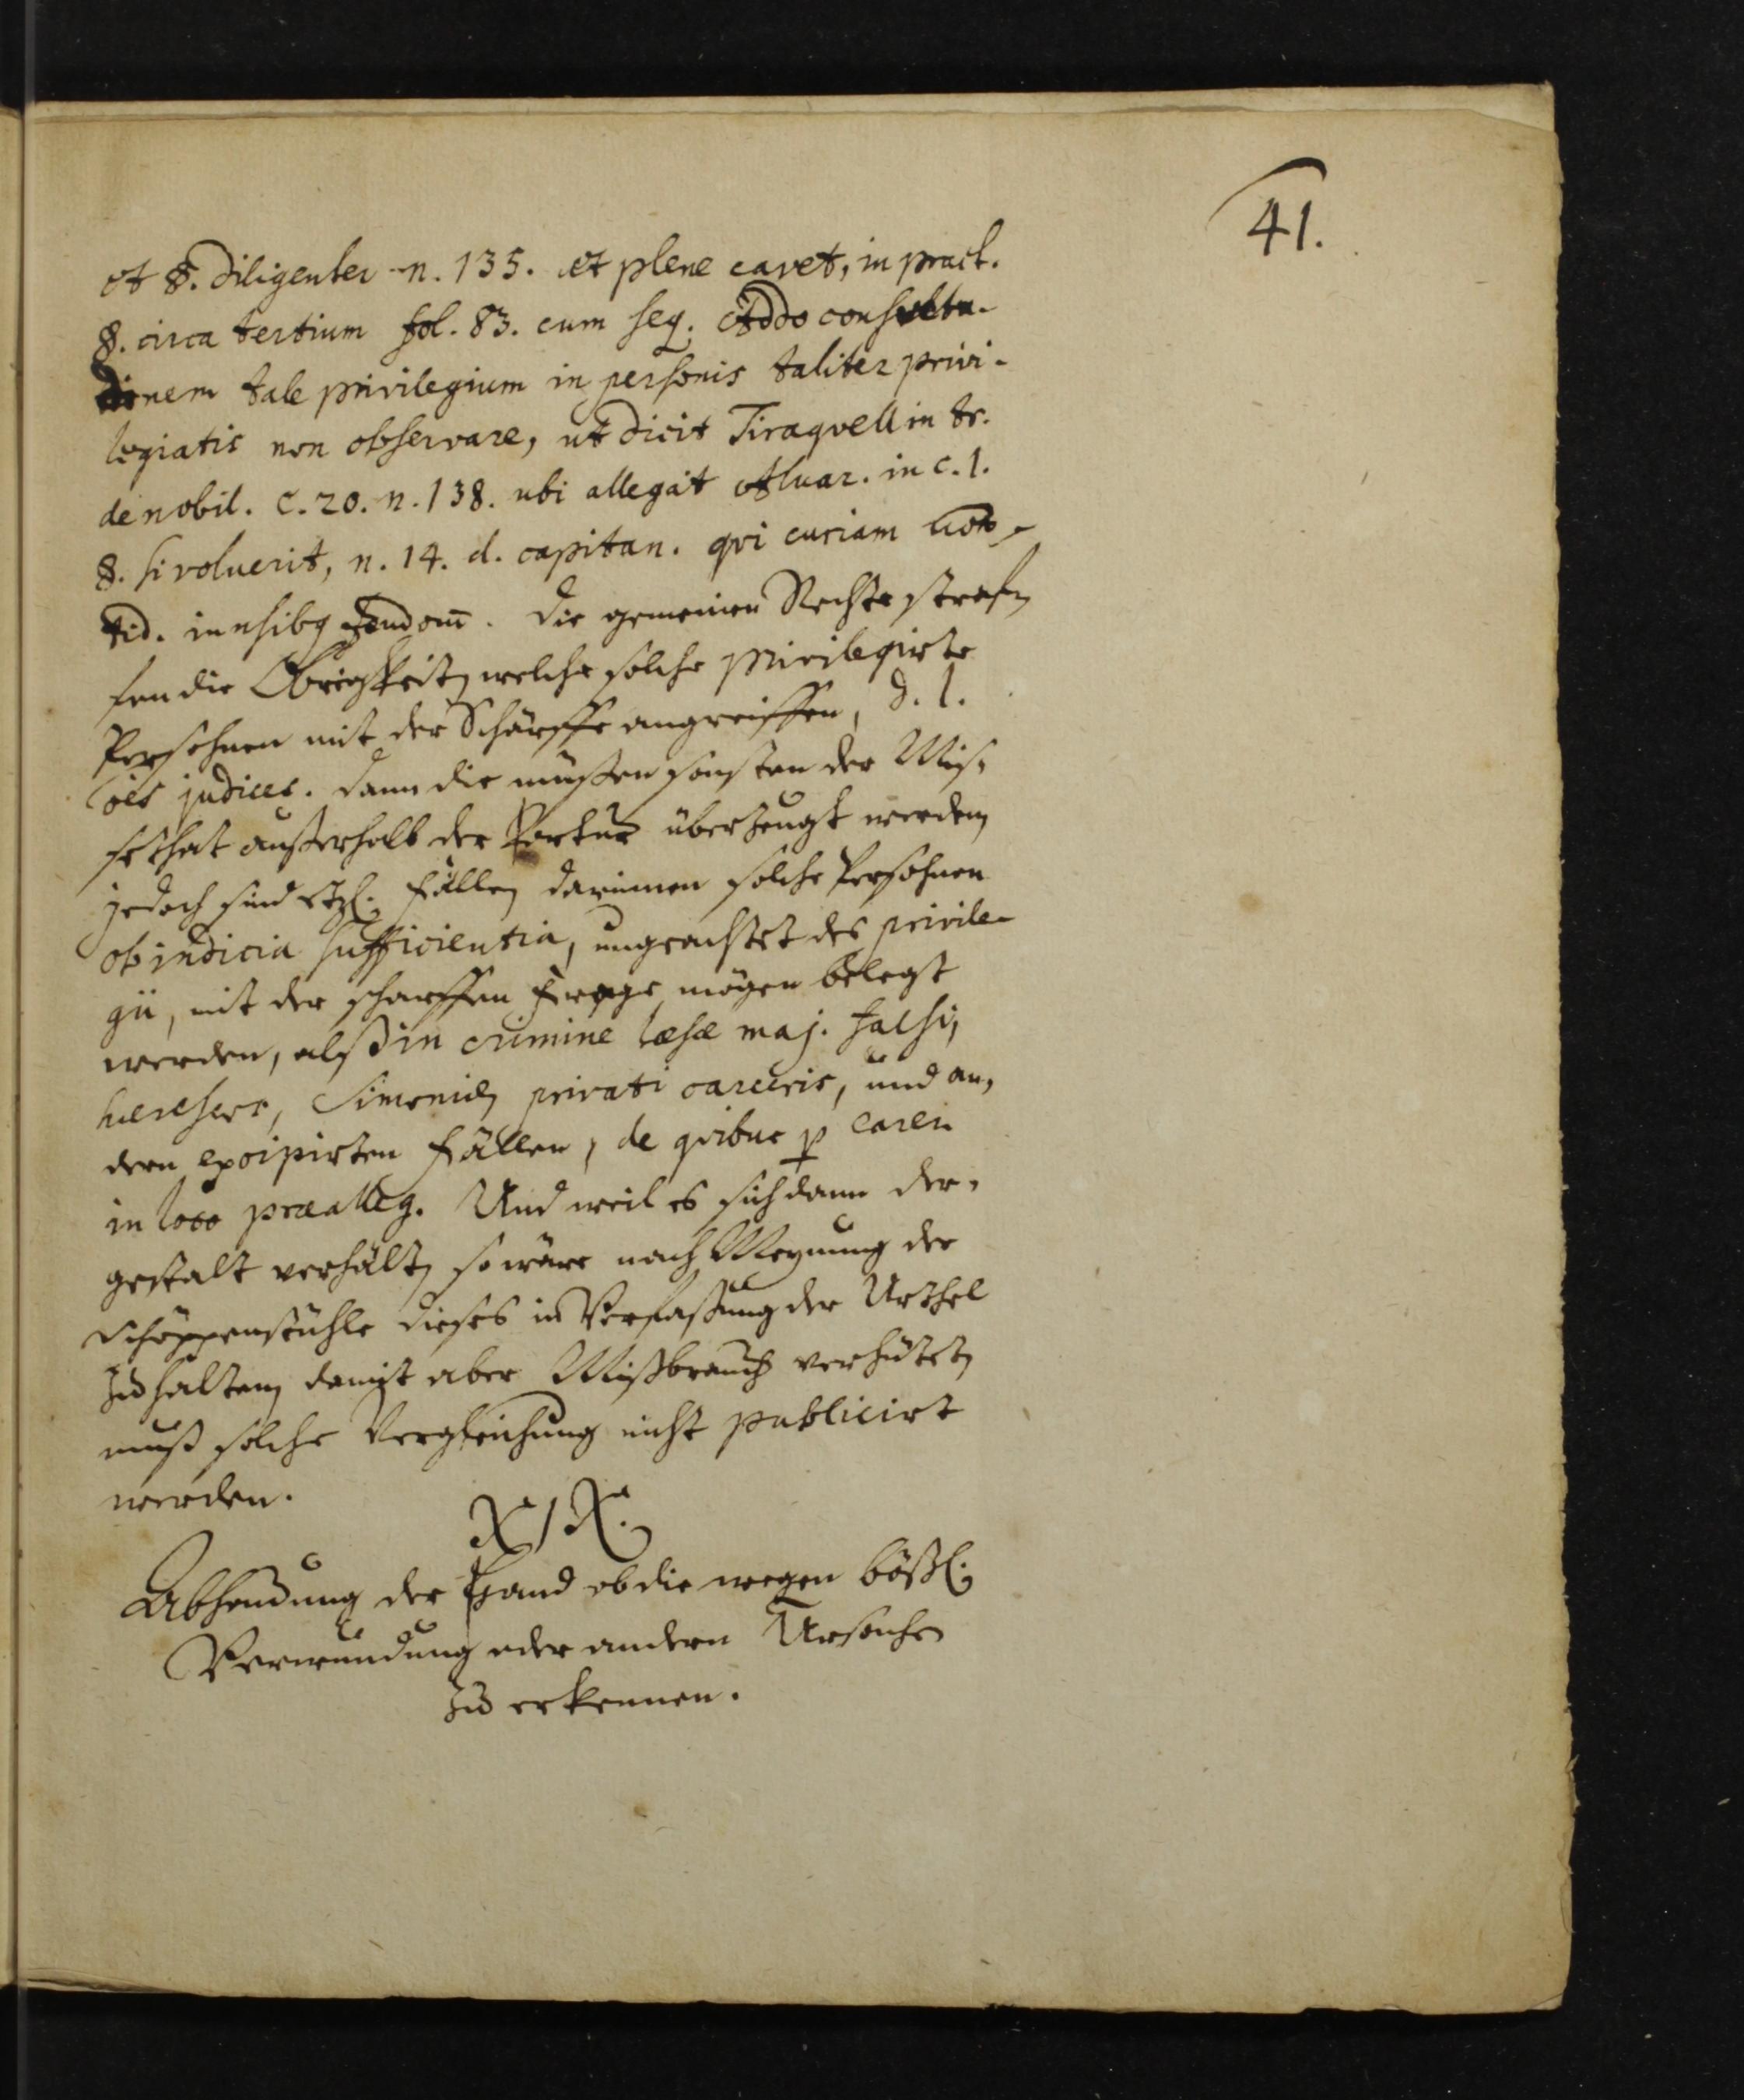 41.
et §. diligenter n. 135. et plene cavet, in pract.
§. circa tertium fol. 83. cum seq. Addo consvetu-
dinem tale privilegium in personis taliter privi-
legiatis non observare, ut dicit Tiraqvell in tr.
de nobil. c. 20. n. 138. ubi allegat Alvar. in c. 1.
§. si voluerit, n. 14. d. capitan. qvi curiam
Die gemeinen Rechte straf-
fen die Obrigkeit, welche solche privilegirte
Persohnen mit der Schärffe angreiffen, d. l.
oēs judices. dann die müßen sonsten der Mis-
sethat außerhalb der Tortur überzeugt werden,
jedoch sind etzl. Fälle, darinnen solche Persohnen
ob indicia sufficientia, ungeachtet des privile-
gii, mit der scharffen Frage, mögen belegt
werden, alß in crimine læsæ maj. falsi,
hæreseos, Simoniæ, privati carceris, und an-
dern excipirten Fällen, de qvibus p earen
in loco præalleg. Und weil es sich dann der-
gestalt verhält, so wäre nach Meynung der
Schöppenstühle dieses in Verfaßung der Urthel
zu halten, damit aber Mißbrauch verhütet,
muß solche Vergleichung nicht publicirt
werden.
XIX.
Abhauung der Hand ob die wegen bößl.
Verwundung oder andern Ursachen
zu erkennen.